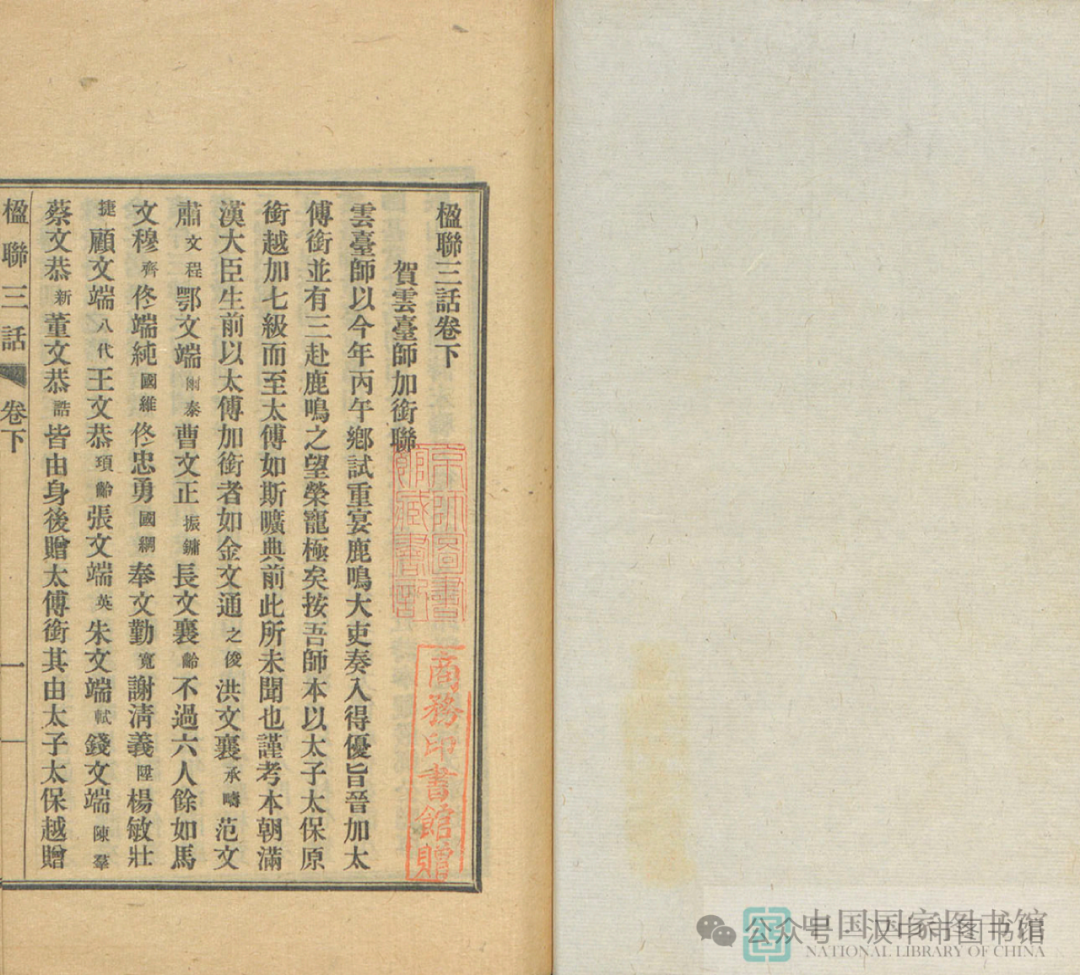 楹聯三話卷下
賀雲臺師加銜聯
雲臺師以今年丙午鄉試重宴鹿鳴大吏奏入得優旨晉加太
傅銜並有三赴鹿鳴之望榮寵極矣按吾師本以太子太保原
銜越加七級而至太傅如斯曠典前此所未聞也謹考本朝滿
漢大臣生前以太傅加銜者如金文通之俊洪文襄承疇范文
肅文程鄂文端爾泰曹文正振鏞長文襄齡不過六人餘如馬
文穆齊佟端純國維佟忠勇國綱奉文勤寬謝清義陞楊敏壯
捷顧文端八代王文恭頊齡張文端英朱文端軾錢文端陳羣
蔡文恭新董文恭誥皆由身後贈太傅銜其由太子太保越贈
楹聯三話 卷下 一
京師圖書
館藏書印
商務印書館贈
中国国家图书馆
NATIONAL LIBRARY OF CHINA
公众号·汉中市图书馆